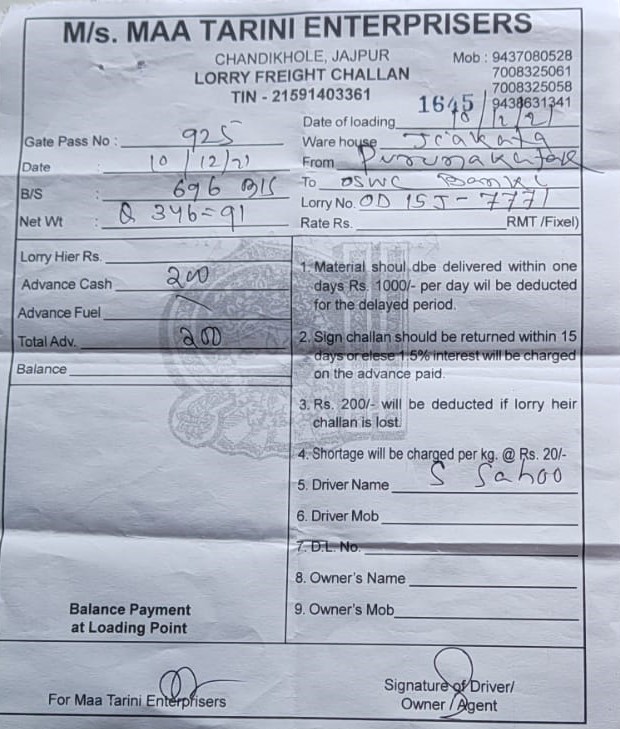 M/s. MAA TARINI ENTERPRISERS
CHANDIKHOLE, JAJPUR
LORRY FREIGHT CHALLAN
TIN - 21591403361
Mob : 9437080528
7008325061
7008325058
9438631341
1645
Gate Pass No : 925
Date 10/12/21
B/S : 696 B/S
Net Wt : Q 346=91
Date of loading 10/12/21
Ware house
From
To OSWC Banki
Lorry No. OD 15J-7771
Rate Rs. RMT /Fixel)
Lorry Hier Rs.
Advance Cash 200
Advance Fuel
Total Adv. 200
Balance
Balance Payment
at Loading Point
1. Material shoul dbe delivered within one
days Rs. 1000/- per day wil be deducted
for the delayed period.
2. Sign challan should be returned within 15
days or elese 1.5% interest will be charged
on the advance paid.
3. Rs. 200/- will be deducted if lorry heir
challan is lost.
4. Shortage will be charged per kg. @ Rs. 20/-
5. Driver Name S Sahoo
6. Driver Mob
7. D.L. No.
8. Owner's Name
9. Owner's Mob
For Maa Tarini Enterprisers
Signature of Driver/
Owner / Agent